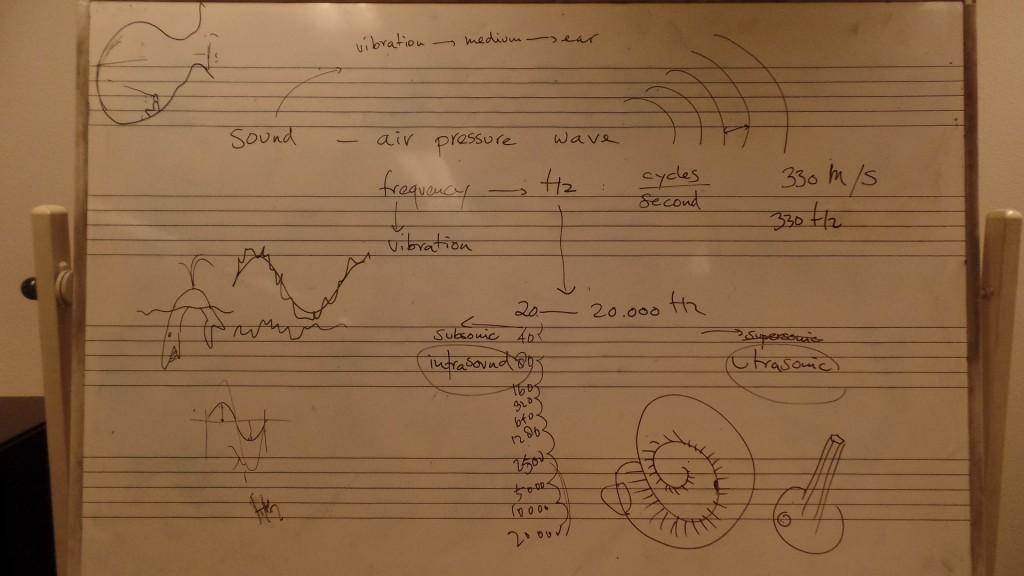 vibration → medium → ear
Sound — air pressure wave
frequency → Hz : cycles / second
330 m/s
330 Hz
vibration
20 — 20.000 Hz
subsonic
supersonic
infrasound
Utrasonic
40
80
160
320
640
1280
2500
5000
10000
20000
Hz